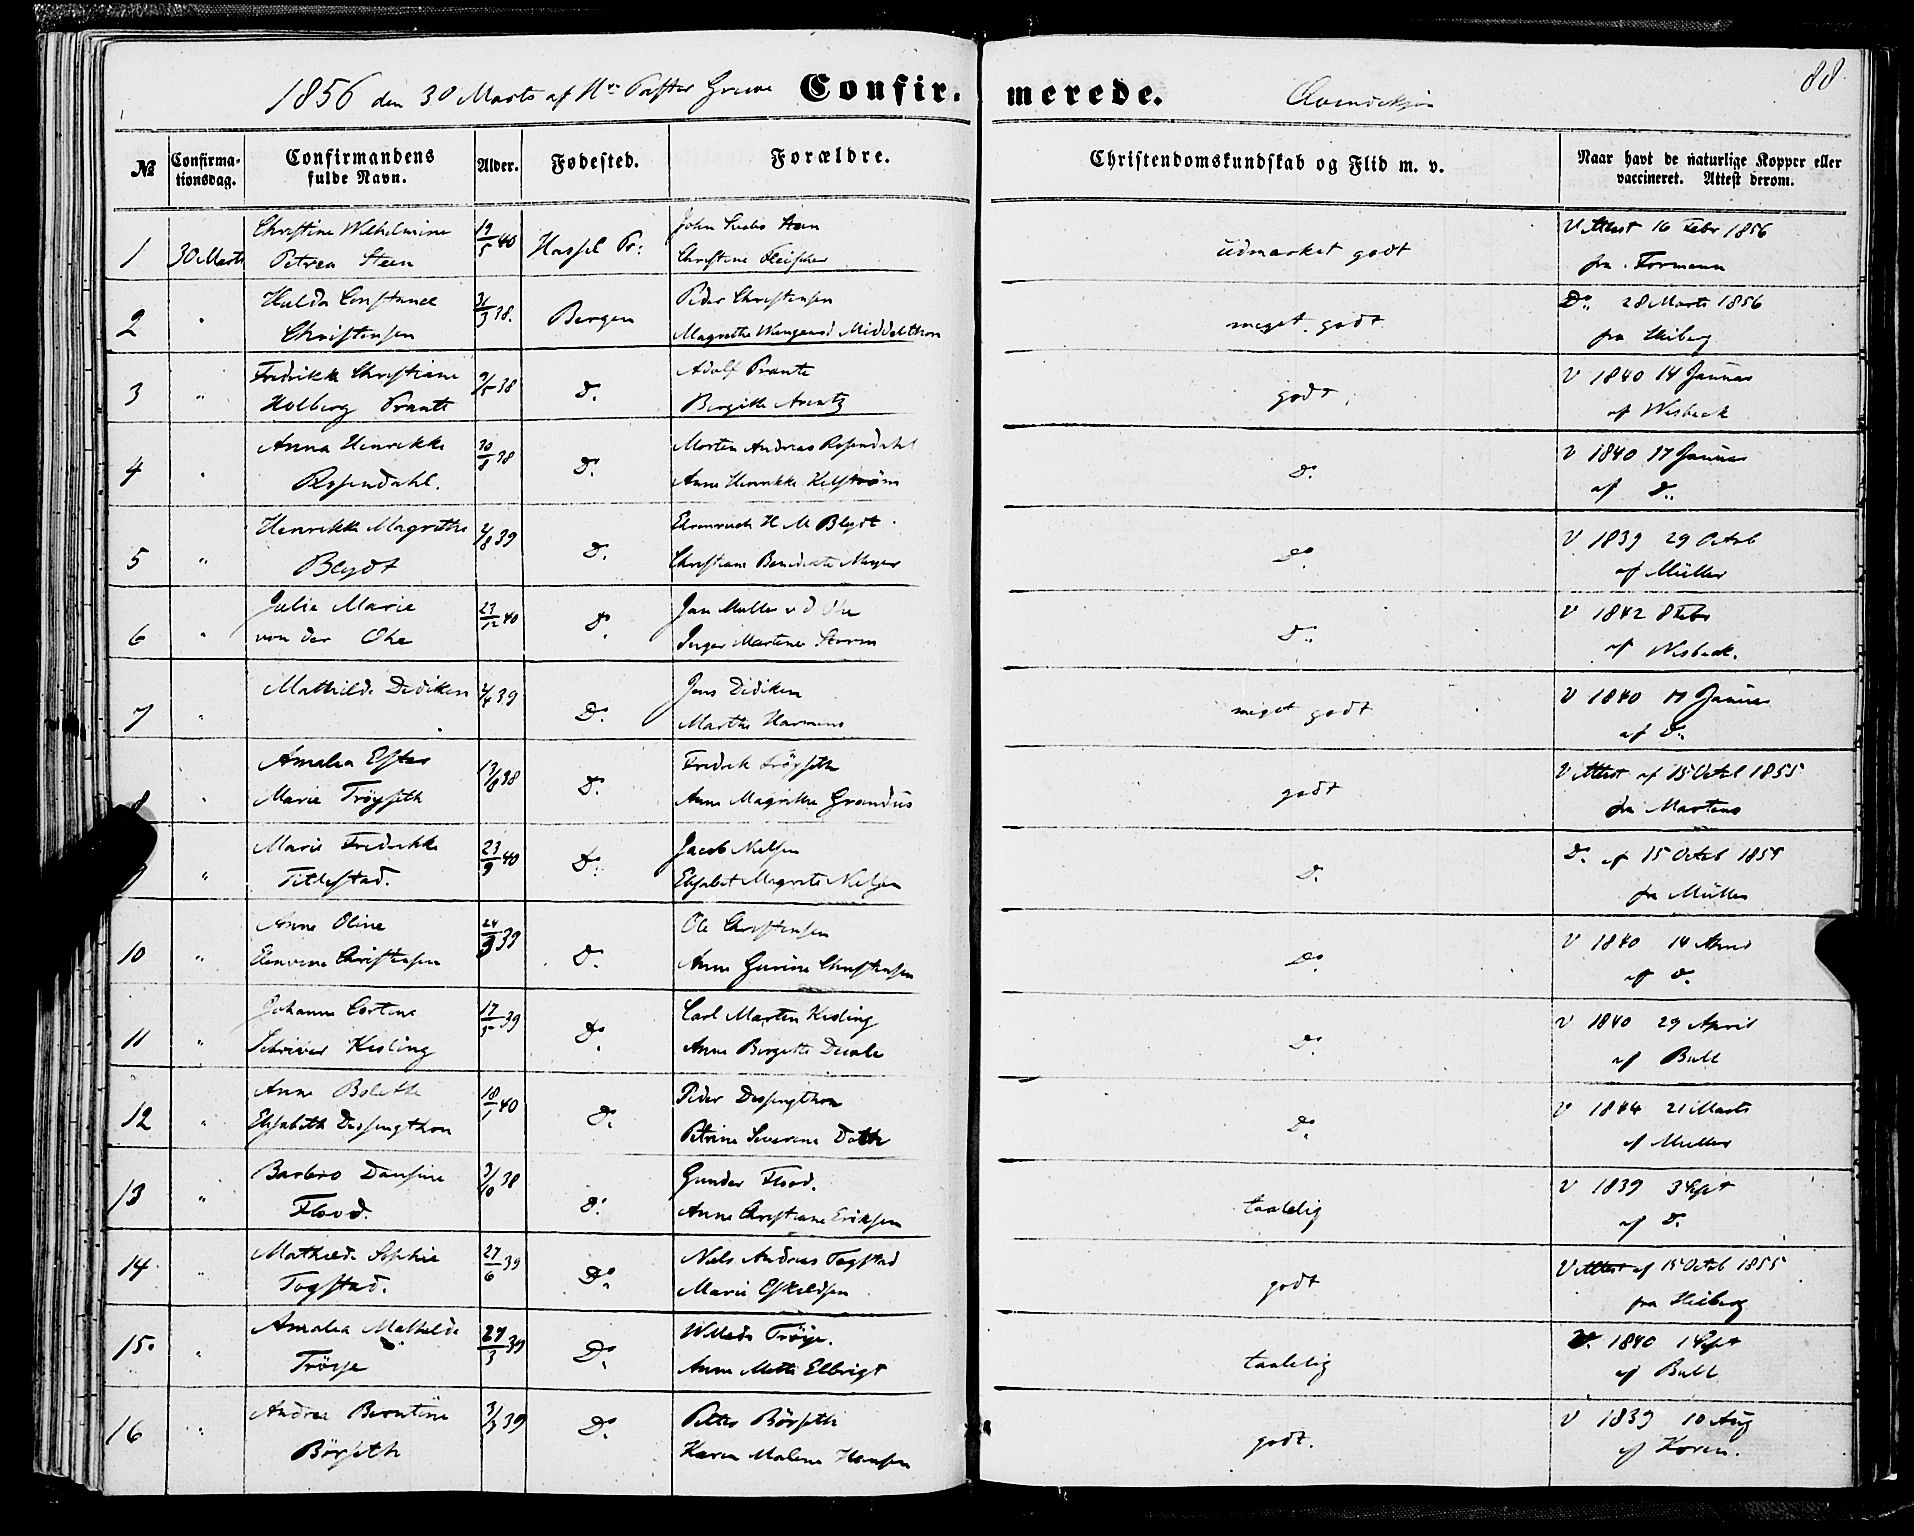 1856 den 30 Marts af Hr. Pastor Greve Confir- merede. Qvindekjøn 88
№ Confirma-tionsdag. Confirmandens fulde Navn. Alder. Fødested. Forældre. Christendomskundskab og Flid m. v. Naar havt de naturlige Kopper eller vaccineret. Attest derom.
1 30 Marts Christine Wilhelmine 19/5 40 Hassel Pr: John Steen udmærket godt V Attest 16 Febr 1856
Petrea Steen Christine Fleischer fra Formann
2 " Hulda Constance 31/3 38. Bergen Peder Christensen meget godt Do. 28 Marts 1856
Christensen Magrethe Middelthon fra Heiberg
3 " Fredrikke Christiane 9/5 38 D. Adolf Prante godt V 1840 14 Januar
Holberg Prante Bergitte Arentz af Wisbeck
4 " Anna Henrikke 30/8 38 D. Morten Andreas Rosendahl D. V 1840 17 Januar
Rosendahl. Anne Henrikke Helstrøm af D.
5 " Henrikke Magrethe 2/8 39 D. Ehrenreich H M Blydt Do V 1839 29 Octob
Blydt Christiane Benedicte Meyer af Müller
6 " Julie Marie 23/12 40 D. Jan Muller v d Ohe D. V 1842 8 Febr
von der Ohe Inger Martine Storm af Wisbeck.
7 " Mathilde Dediken 2/4 39 D. Jens Didiken meget godt V 1840 17 Januar
Marthe Harmens af D.
8 " Amalia Ester 13/8 38 D. Fredrik Trøyseth godt V Attest af 15 Octob 1855
Marie Trøyseth Anne Magrethe Grandus fra Martens
9 " Marie Fredrikke 23/9 40 D. Jacob Nielsen D. D. af 15 Octob 1855
Titlestad. Elisabet Magrete Nielsen fra Müller
10 " Anne Oline 24/3 39 D. Ole Christensen Do V 1840 14 April
Elenvine Christensen Anne Gurine Christensen af D.
11 " Johanne Cortine 17/5 39 D. Carl Martin Kesling D. V 1840 29 April
Schriver Kesling Anne Bergitte af Bull
12 " Anne Bolette 18/1 40 D. Peder Dessingthon D. V 1844 21 Marts
Elisabeth Dessingthon Petrine Severine Dath af Muller
13 " Barbro Dansine 3/10 38 D. Gunder Flood. taalelig V 1839 3 Sept
Flood. Anne Christiane Eriksen af D.
14 " Mathilde Sophie 27/6 39 Do Niels Andreas Togstad godt V Attest af 15 Octob 1855
Togstad. Marie Eskildsen fra Heiberg
15. " Amalia Mathilde 27/3 39 Do Trøye. taalelig V. 1840 1 Sept
Trøye Anne Mette Elbrigt af Bull
16 " Andrea Berntine 3/3 39 Do Petter Børseth godt. V 1839 10 Aug
Børseth Karen Malene Hansen af Koren.